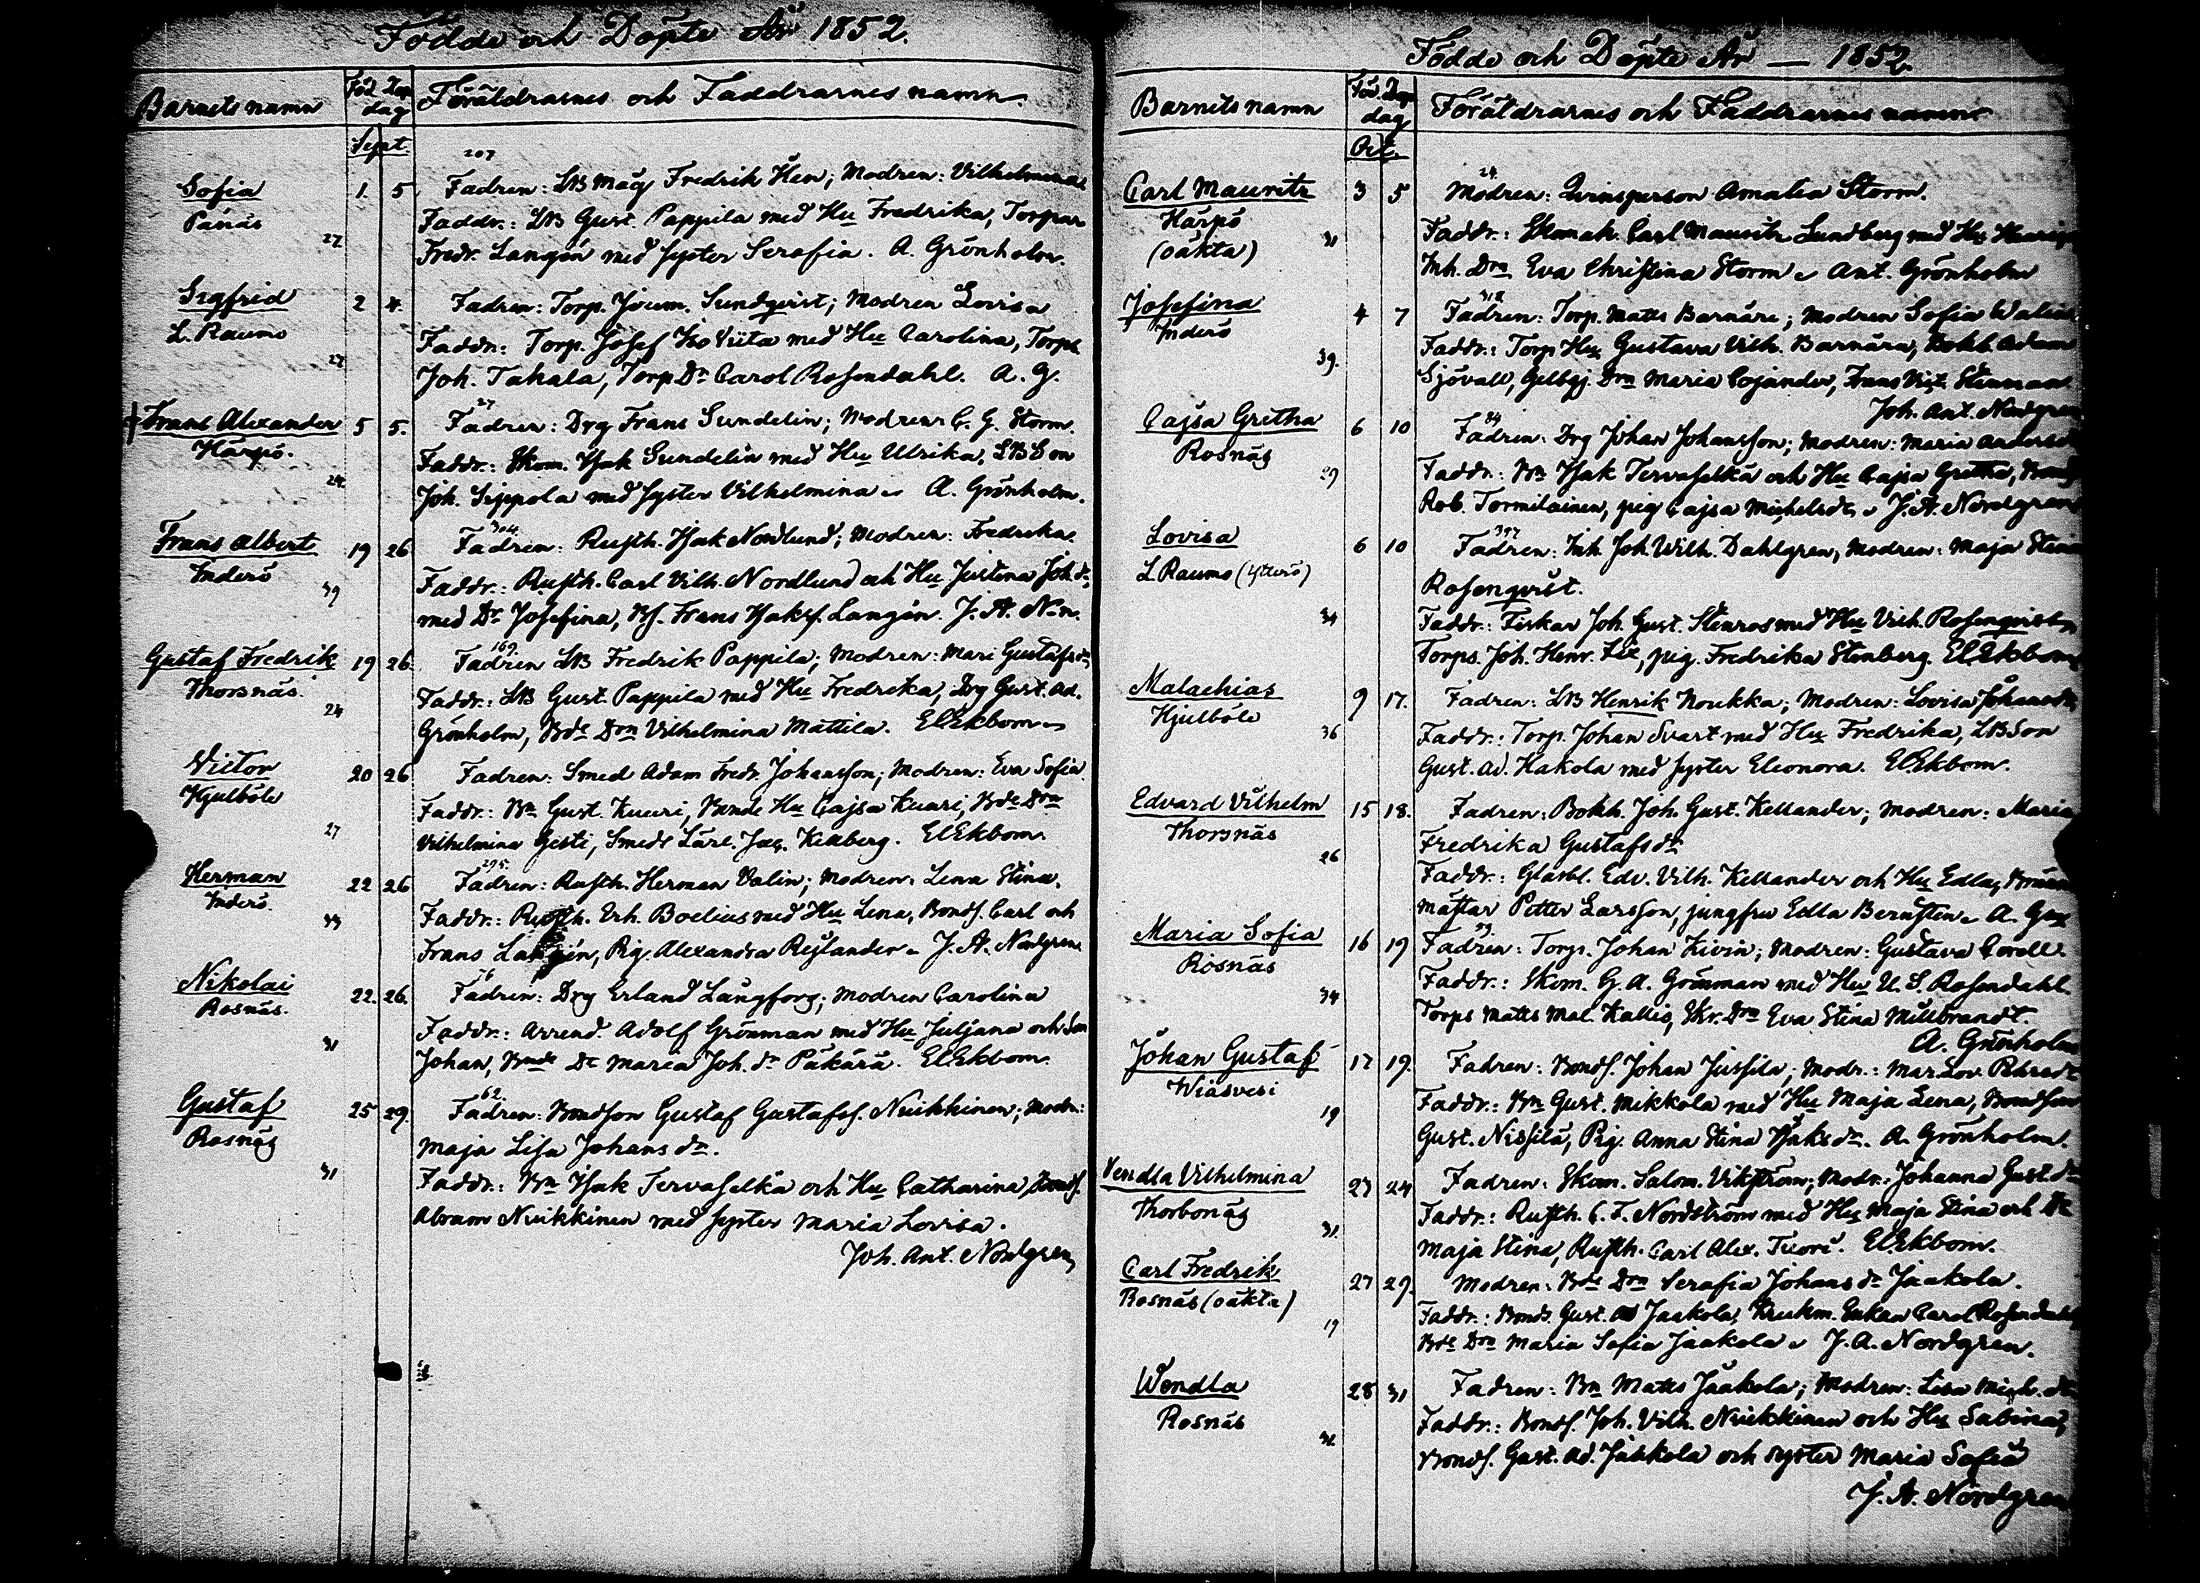 Födde och Döpte År 1852.
Barnets namn Föd. Döp. dag Föräldrarnes och Faddrarnes namn.
Sept.
207
Sofia 1. 5. Fadren: LB Måg Fredrik Hen; Modren: Vilhelmina
Pånäs Faddr.: LB Gust. Pappila med Hu Fredrika, Torpar
27 Fredr. Langén med syster Serafia. A. Grönholm.
Sigfrid 2 4. Fadren: Torp. Joum. Sundqvist; Modren Lovisa
L. Raumo Faddr: Torp. Josef Iso Viita med Hu Carolina, Torps
27 Joh. Tahala, Torp Dr Carol Rosendahl. A. G.
27
+ Frans Alexander 5 5. Fadren: Drg Frans Sundelin; Modren C. G. Storm.
Harpö. Faddr.: Skom. Isak Sundelin med Hu Ulrika, LB Son
24 Joh. Seppola med syster Vilhelmina A. Grönholm.
304
Frans Albert 19 26 Fadren: Rusth. Isak Nordlund; Modren: Fredrika
Inderö Faddr.: Rusth. Carl Vilh. Nordlund och Hu Justina Joh. dr
39 med Dr Josefina, Bs. Frans Isaks. Langén. J. A. N-n.
169
Gustaf Fredrik 19 26. Fadren LB Fredrik Pappila; Modren: Mari Gustafsdr
Thorsnäs. Faddr.: LB Gust. Pappila med Hu Fredrika, Drg Gust. Ad.
24 Grönholm, Bde Drn Vilhelmina Mattila. El. Ekbom
Victor 20 26 Fadren: Smed Adam Fredr. Johansson; Modren: Eva Sofia
Hjulböle Faddr.: Bn Gust. Kuuri, Bonde Hu Cajsa Kuuri, Bde Drn
27 Vilhelmina Gesti, Smeds Lärl. Jac. Kellberg. El Ekbom.
295.
Herman 22 26 Fadren: Rusth. Herman Valin; Modren: Lena Stina.
Inderö Faddr.: Rusth. Erh. Boelius med Hu Lena, Bonds. Carl och
33 Frans Langén, Pig. Alexandra Rejlander J. A. Nordgren
76
Nikolai 22. 26. Fadren: Drg Erland Långforg; Modren Carolina
Rosnäs. Faddr.: Arrend. Adolf Grönman med Hu Juljana och Son
31 Johan, Bonde Dr Maria Joh. dr Päkärä. El Ekbom.
62.
Gustaf 25 29. Fadren: Bondson Gustaf Gustafss. Nuikkinen; Modr:
Rosnäs Maja Lisa Johans dr.
31 Faddr.: Bn Isak Tervaselkä och Hu Catharina, Bonds.
Abram Nuikkinen med syster Maria Lovisa.
Joh. Ant. Nordgren
Födde och Döpte År — 1852
Barnets namn Föd. Döp. dag Föräldrarnes och Faddrarnes namn
Oct.
24
Carl Mauritz 3 5 Modren: Qvinsperson Amalia Storm.
Harpö Faddr.: Skomak. Carl Mauritz Lundberg med Hu
(oäkta) 31 Inh. Drn Eva Christina Storm Ant. Grönholm
318
Josefina 4 7 Fadren: Torp. Matts Barnäre; Modren Sofia
Inderö Faddr.: Torp Hu Gustava Vilh. Barnära, Bokh. Adam
39. Sjövall, Gelbgj. Drn Maria Cojander, Frans Vict. Stenman
Joh. Ant. Nordgren
24
Cajsa Gretha 6 10 Fadren: Drg Johan Johansson; Modren: Maria
Rosnäs Faddr.: Bn Isak Tervaselkä och Hu Cajsa Gretha,
29 Rob. Tormilainen, pig Cajsa Michelsdr J. A. Nordgren
397
Lovisa 6 10 Fadren: Inh Joh Wilh. Dahlgren, Modren: Maja Stina
L Raumo (Ytterö) Rosenqvist.
34 Faddr.: Fiskar Joh. Gust. Stenros med Hu Vilh. Rosenqvist
Torps. Joh. Henr. pig. Fredrika Stenberg. El. Ekbom
Malachias 9 17. Fadren: LB Henrik Noukka; Modren: Lovisa Johansdr
Hjulböle Faddr.: Torp. Johan Svart med Hu Fredrika, LB Son
36 Gust. Ad. Hakola med syster Eleonora. El Ekbom.
Edvard Vilhelm 15 18. Fadren: Bokh. Joh. Gust. Kellander; Modren: Maria
Thorsnäs Fredrika Gustafsdr
26 Faddr.: Glasbl. Edv. Vilh. Kellander och Hu Edla,
mästar Petter Larsson, jungfru Edla Bernsten A. G
59.
Maria Sofia 16 19 Fadren: Torp. Johan Kivin; Modren: Gustava Corell.
Rosnäs Faddr.: Skom. G. A. Grönman med Hu U. S. Rosendahl.
34 Torps Matts Mal. Kallio, Skr. Drn Eva Stina Millbrandt.
A. Grönholm
Johan Gustaf 17 19. Fadren: Bonds. Johan Jussila; Modr.: Mar. Lov.
Wiäsvesi Faddr.: Bn Gust. Mikkola med Hu Maja Lena, Bondson
19 Gust. Nissilä, Pig. Anna Stina Isaks dr. A. Grönholm.
Vendla Vilhelmina 23 24 Fadren: Skom. Salom. Vikström; Modr.: Johanna Gust dr
Thorbonäs Faddr.: Rusth. C. F. Nordström med Hu Maja Stina och Dr
31. Maja Stina, Rusth. Carl Alex. Tuori. El Ekbom.
Carl Fredrik 27 29. Modren: Bde Drn Serafia Johans dr Jaakola.
Rosnäs (oäkta) Faddr.: Bonds. Gust. Ad Jaakola, Enkan Carol Rosendahl
19 Bde Drn Maria Sofia Jaakola J. A. Nordgren.
Wendla 28 31 Fadren: Bn Matts Jaakola; Modren: Lisa Mich. dr
Rosnäs Faddr.: Bonds. Joh. Vilh. Nuikkinen och Hu Sabina,
36 Bonds. Gust. Ad. Jaakola och syster Maria Sofia
J. A. Nordgren